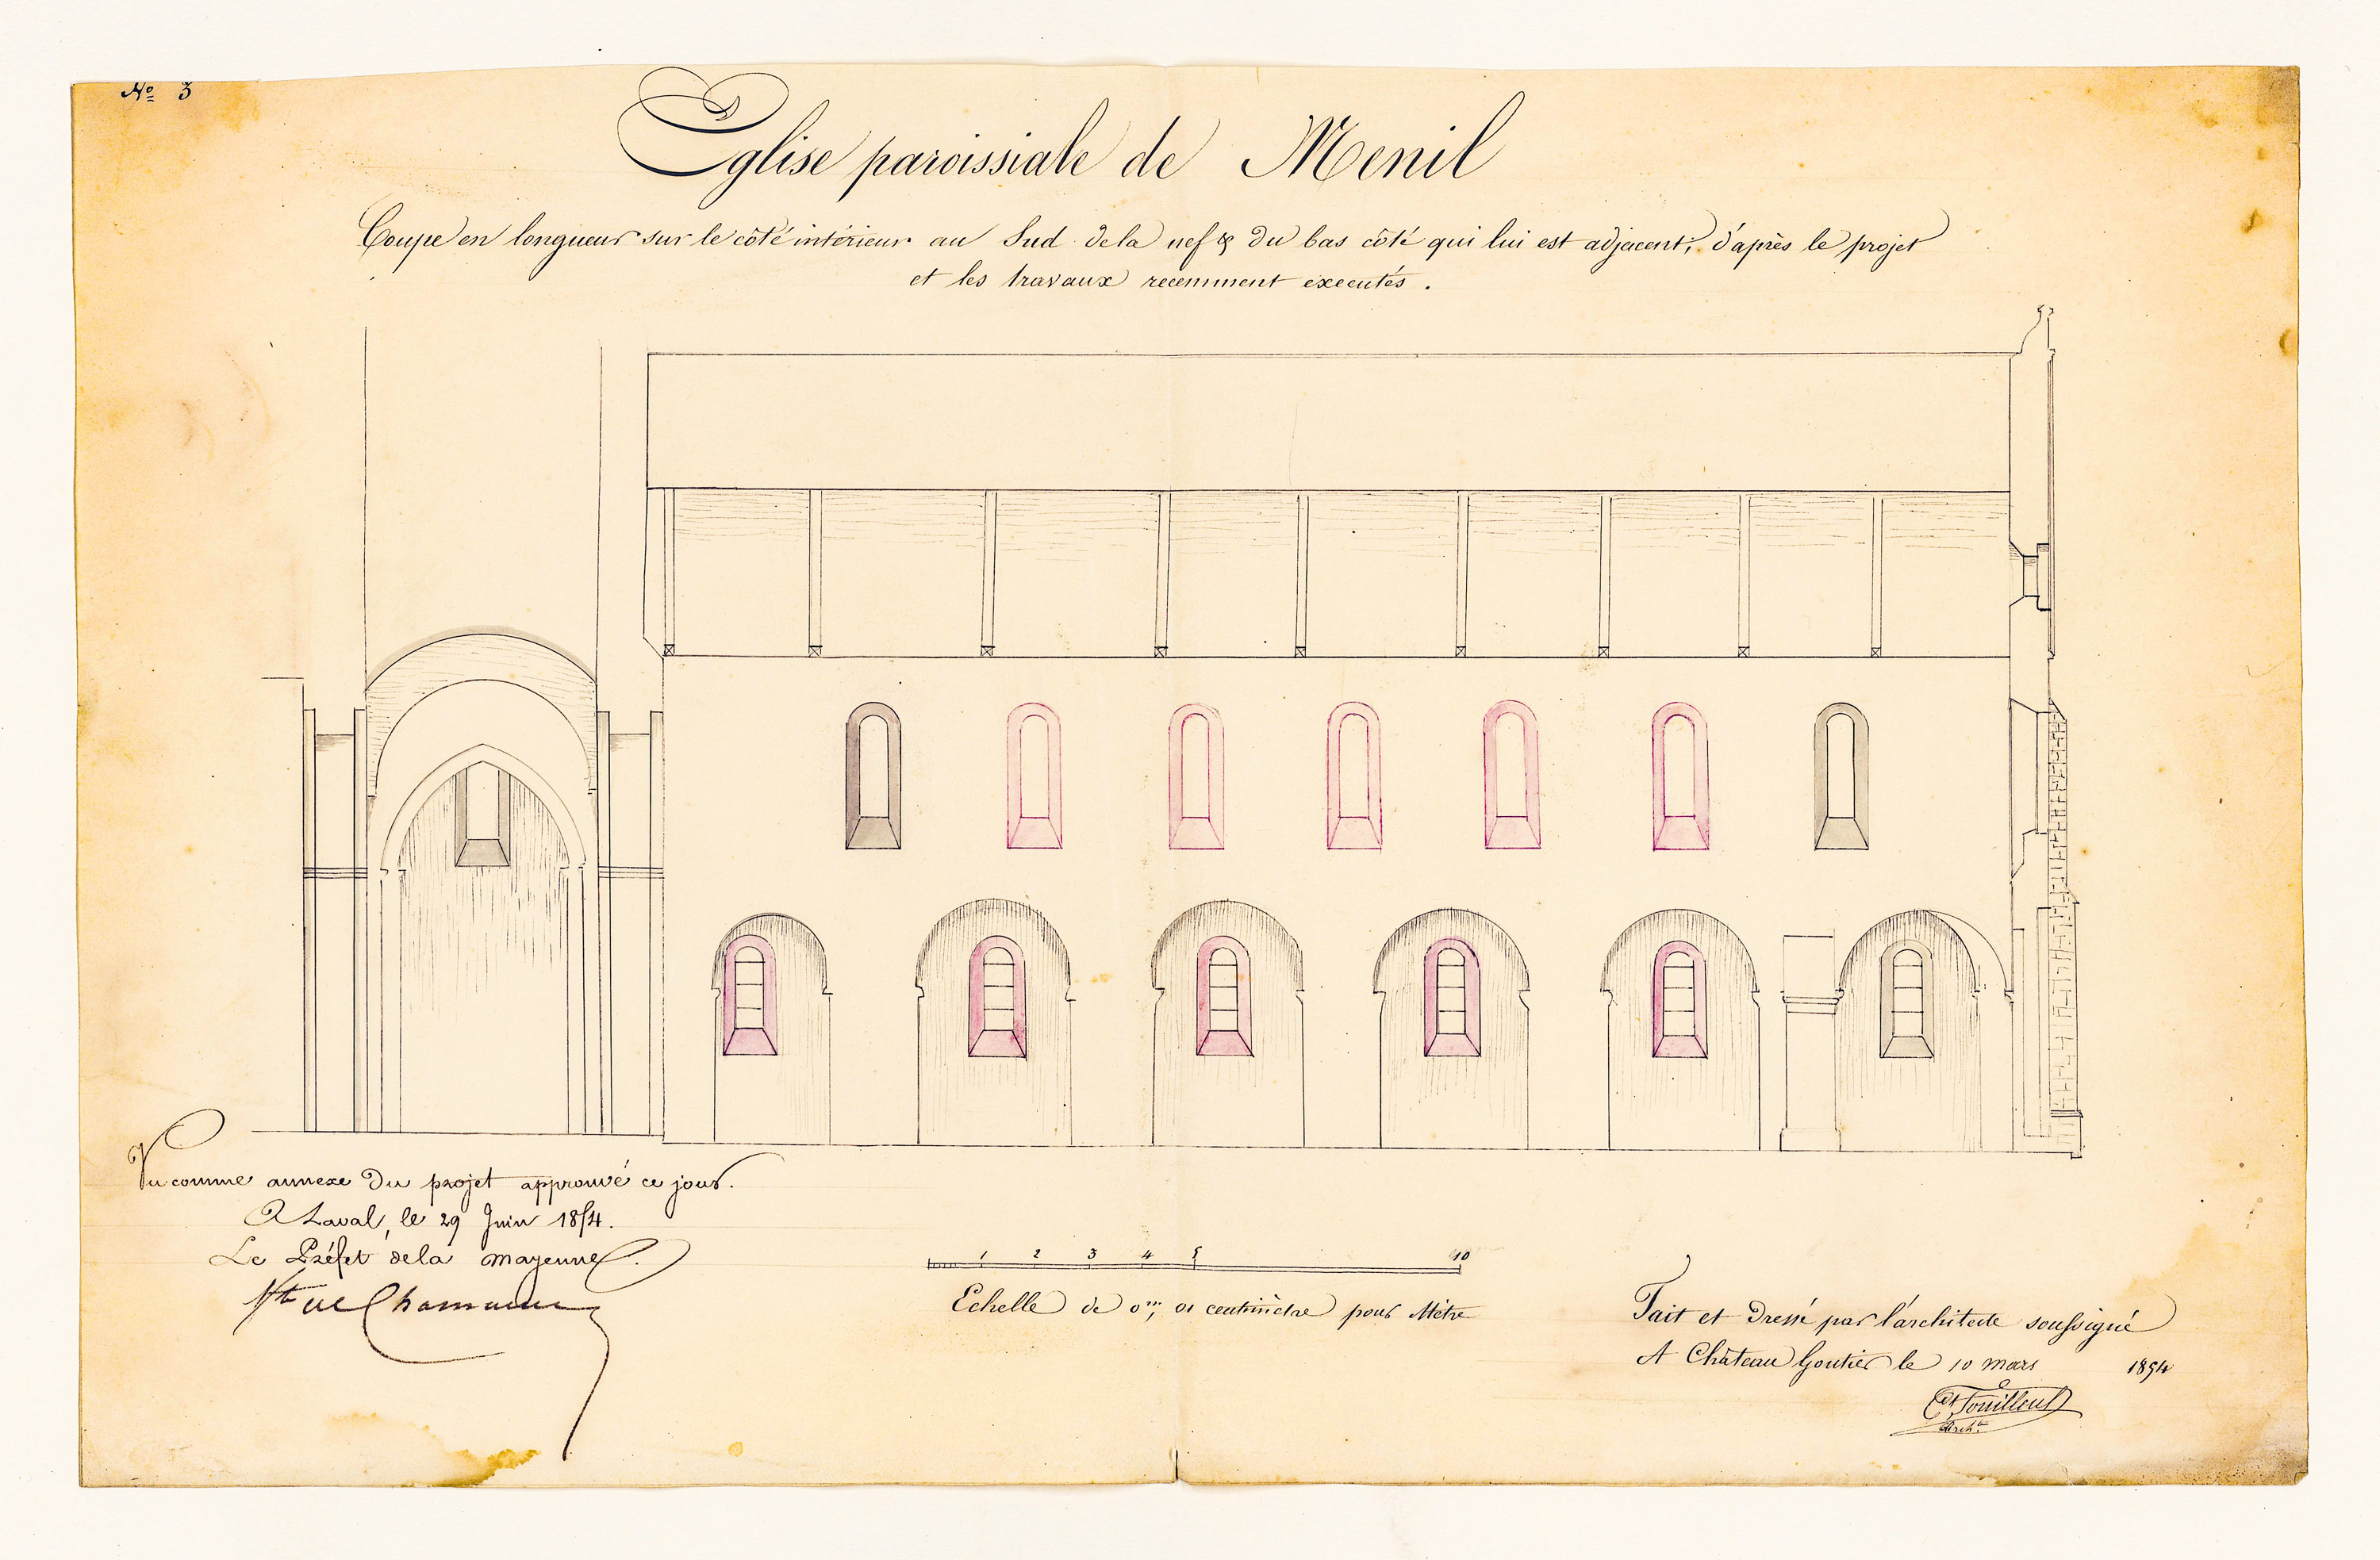 No 3
Eglise paroissiale de Menil
Coupe en longueur sur le côté intérieur au Sud de la nef & du bas côté qui lui est adjacent, d'après le projet
et les travaux recemment executés.
Vu comme annexe du projet approuvé ce jour.
A Laval, le 29 Juin 1854.
Le Préfet de la Mayenne.
Vte de
1 2 3 4 5 10
Echelle de 0m, 01 centimètre pour Mètre
Fait et Dressé par l'architecte soussigné
A Château Gontier le 10 mars 1854
Archte